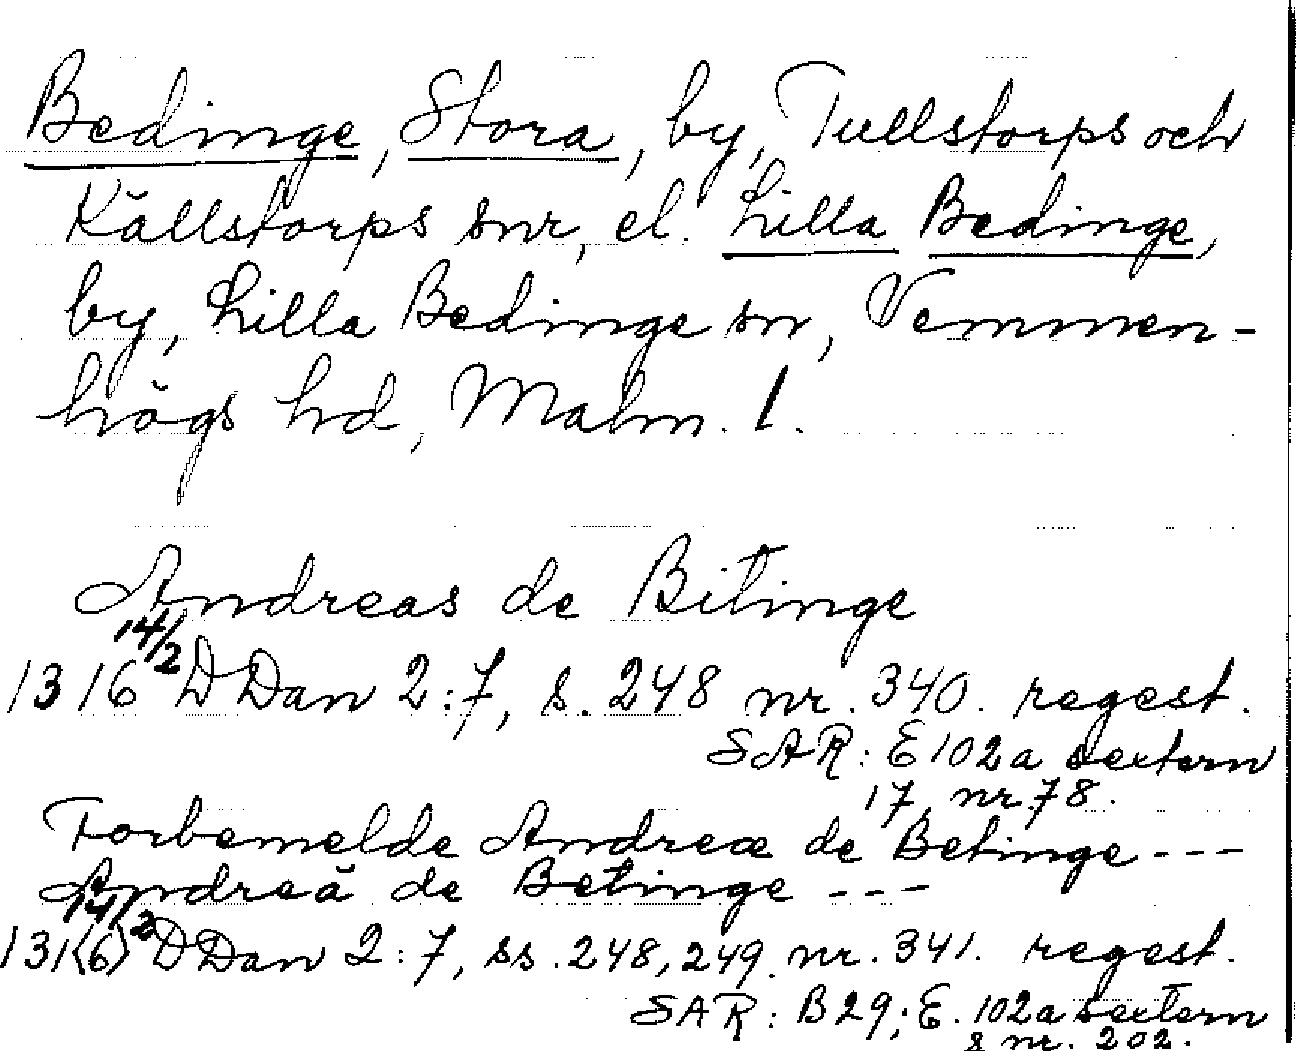 Bedinge, Stora, by, Tullstorps och
Källstorps snr, el. Lilla Bedinge,
by, Lilla Bedinge sn, Vemmen-
högs hd, Malm. l.
Andreas de Bitinge
14/2
1316 DDan 2:7, s. 248 nr. 340. regest.
SAR: E 102a sextern
17, nr. 78.
Forbemelde Andreæ de Betinge ---
Andreä de Betinge ---
14/2
131(6) DDan 2:7, ss. 248, 249. nr. 341. regest.
SAR: B29; E. 102a sextern
8 nr. 202.